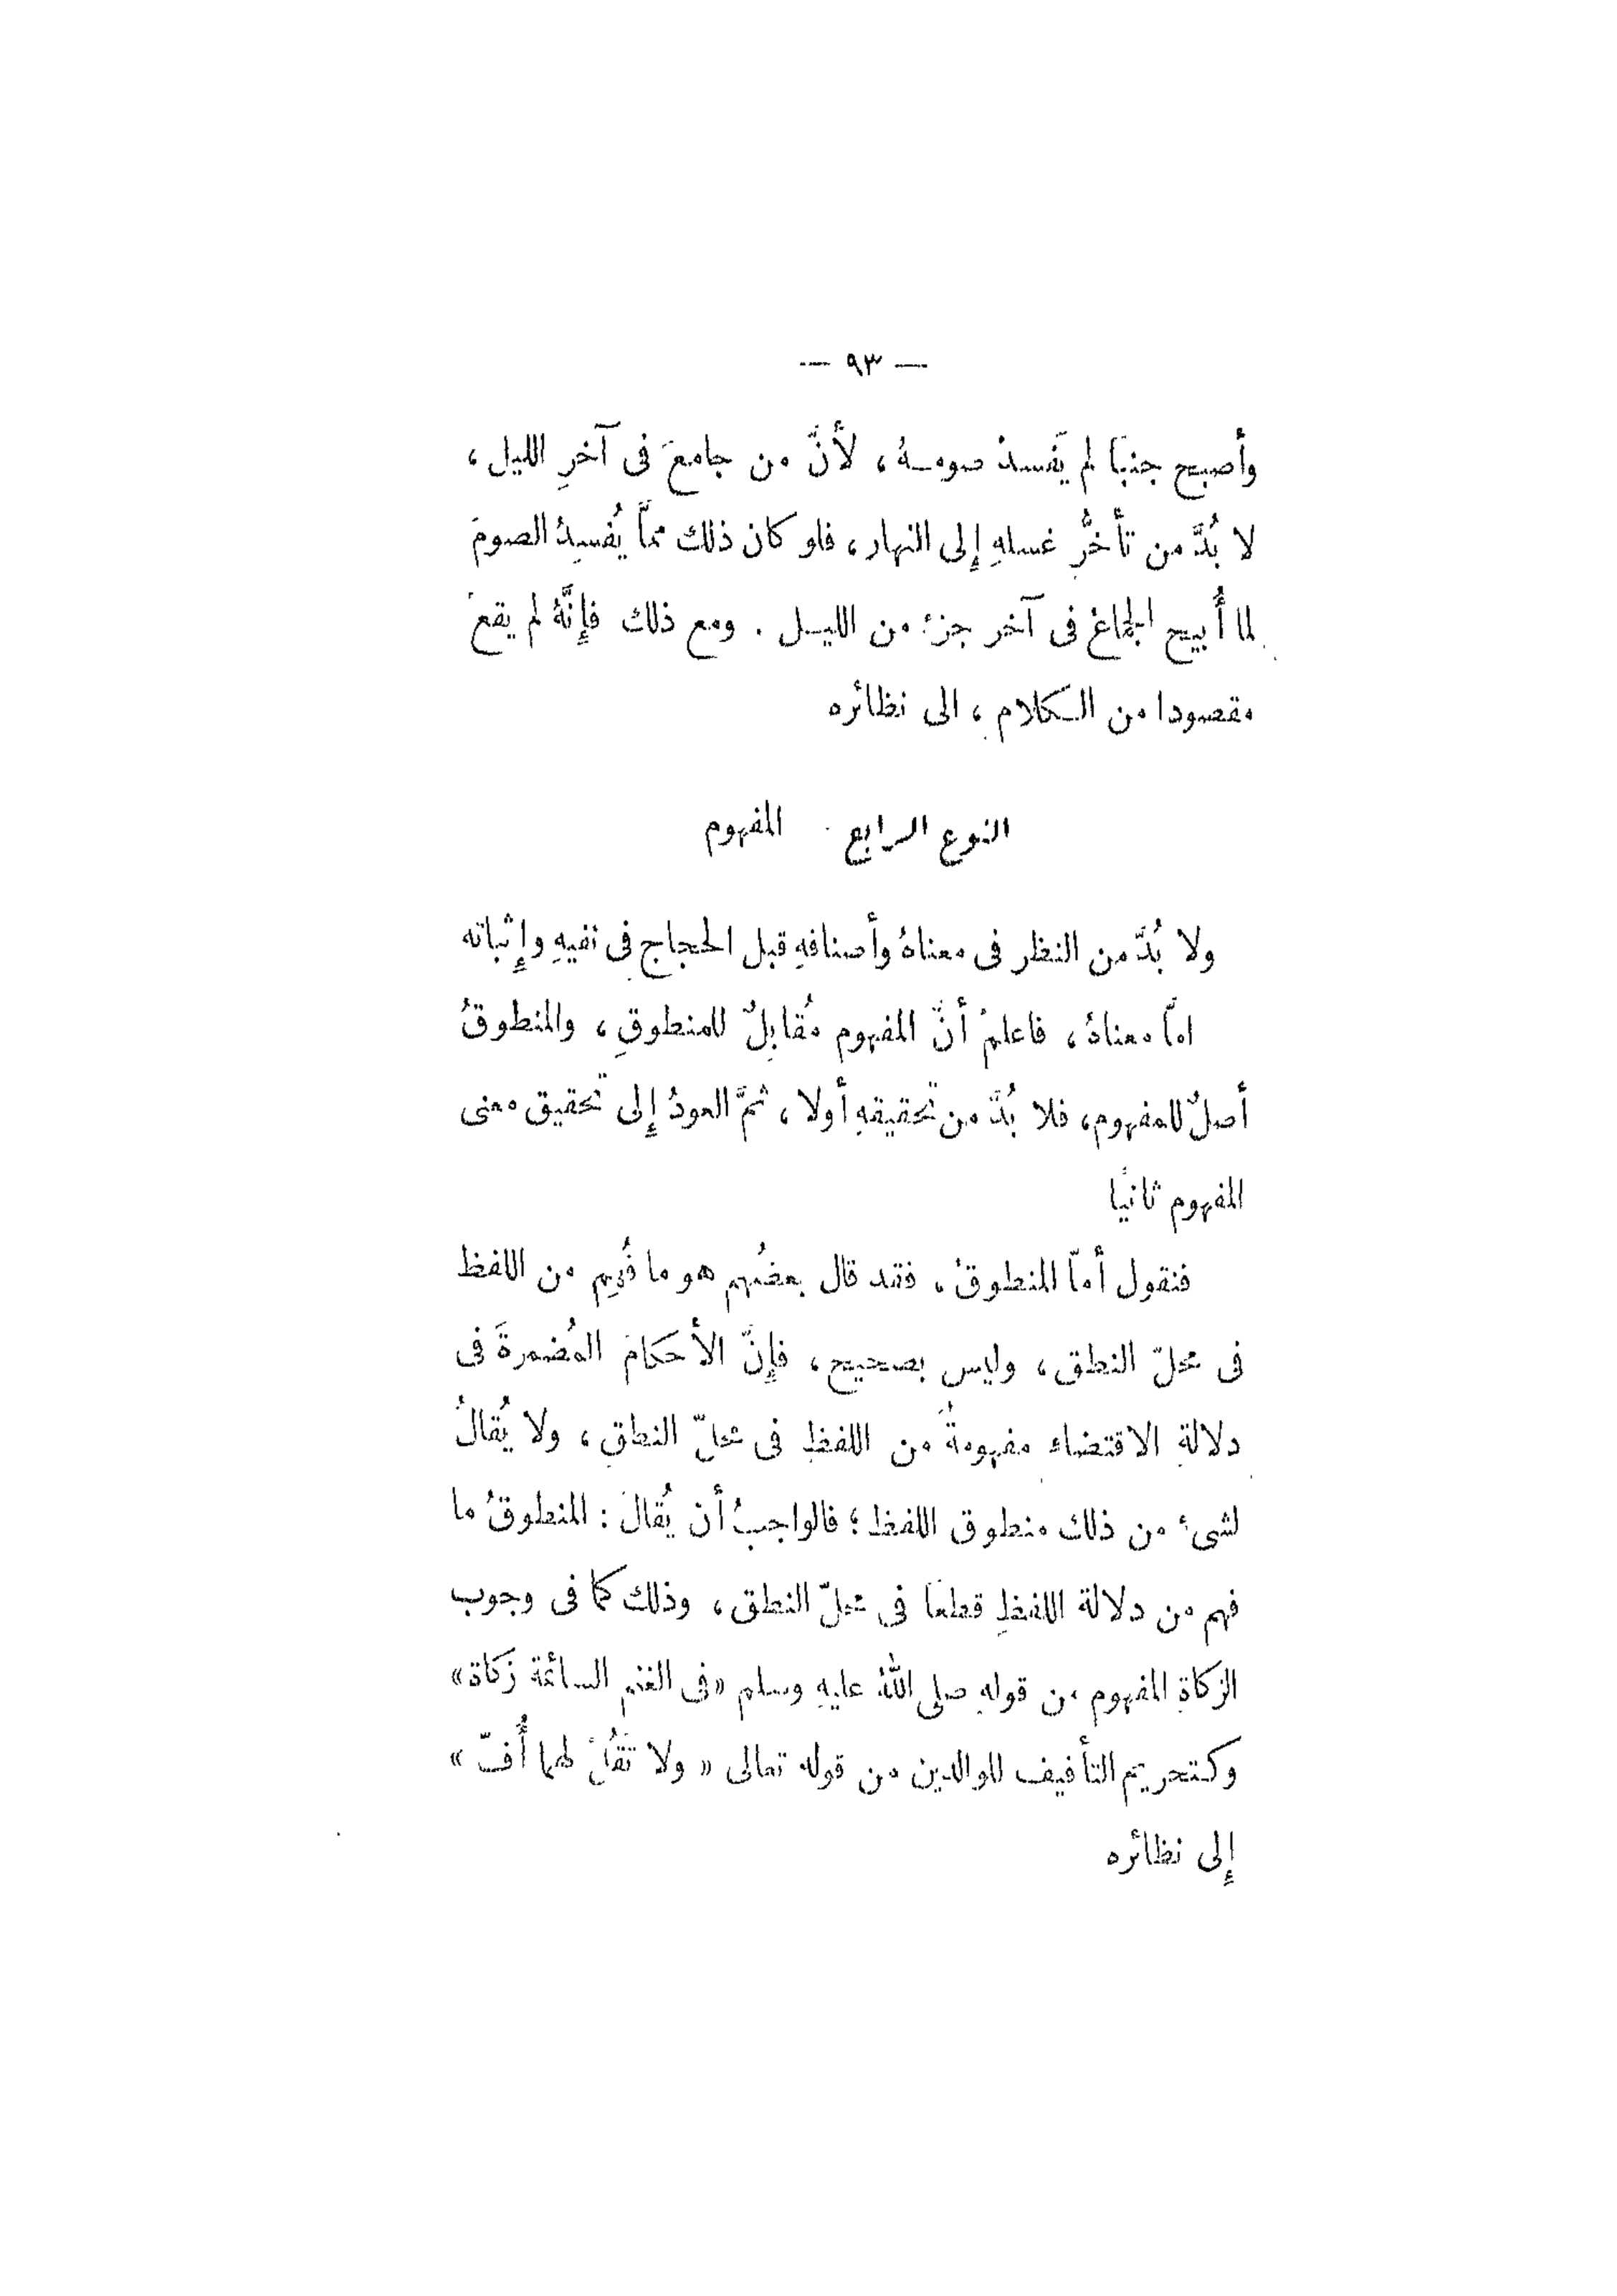 — ٩٣ —
وأصبح جنبًا لم يَفسدْ صومـهُ ، لأنَّ من جامعَ فى آخرِ الليل ،
لا بُدَّ من تأخُّرِ غسلهِ إلى النهار ، فلو كان ذلك ممَّا يُفسِدُ الصومَ
لما أُبيح الجماعُ فى آخر جزءٍ من الليـل . ومع ذلك فإنَّهُ لم يقعْ
مقصودا من الـكلام ، الى نظائره
النوع الرابع المفهوم
ولا بُدَّ من النظر فى معناهُ وأصنافهِ قبل الحجاج فى نفيهِ وإثباته
امّا معناهُ ، فاعلمْ أنَّ المفهوم مُقابِلٌ للمنطوقِ ، والمنطوقُ
أصلٌ للمفهوم ، فلا بُدَّ من تحقيقهِ أولا ، ثمَّ العودُ إلى تحقيق معنى
المفهوم ثانيًا
فنقول أمّا المنطوقُ ، فقد قال بعضُهم هو ما فُهِم من اللفظ
فى محلّ النطق ، وليس بصحيح ، فإنَّ الأحكامَ المُضمرةَ فى
دلالةِ الاقتضاء مفهومةٌ من اللفظِ فى محلّ النطقِ ، ولا يُقالُ
لشىءٍ من ذلك منطوق اللفظ ؛ فالواجبُ أن يُقالَ : المنطوقُ ما
فهم من دلالة اللفظِ قطعًا فى محلّ النطق ، وذلك كما فى وجوب
الزكاةِ المفهوم من قولهِ صلى اللهُ عليهِ وسلم «فى الغنم السائمة زكاة»
وكـتحريم التأفيف للوالدين من قوله تعالى « ولا تَقُلْ لهما أُفّ »
إلى نظائره